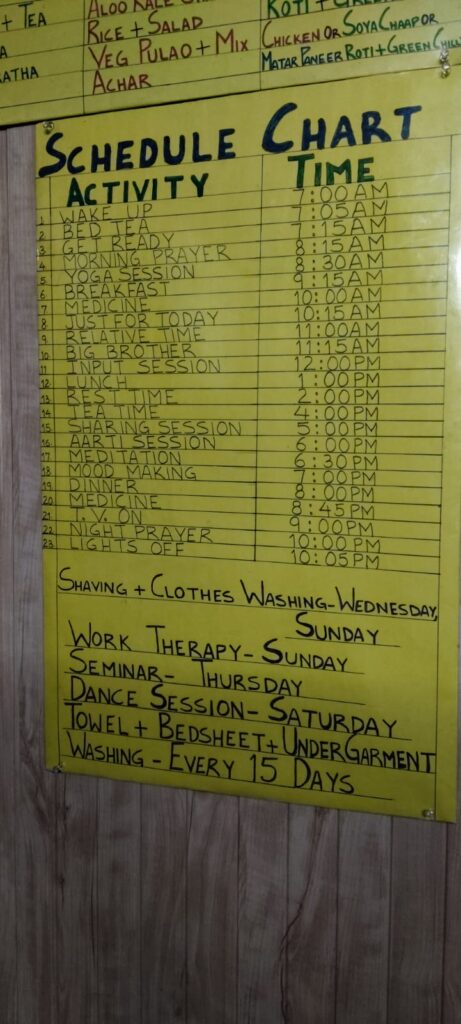 + TEA
RATHA
ALOO
RICE + SALAD
VEG PULAO + MIX
ACHAR
ROTI +
CHICKEN OR SOYA CHAAP OR
MATAR PANEER ROTI + GREEN
SCHEDULE CHART
ACTIVITY TIME
1 WAKE UP 7:00 AM
2 BED TEA 7:05 AM
3 GET READY 7:15 AM
4 MORNING PRAYER 8:15 AM
5 YOGA SESSION 8:30 AM
6 BREAKFAST 9:15 AM
7 MEDICINE 10:00 AM
8 JUST FOR TODAY 10:15 AM
9 RELATIVE TIME 11:00 AM
10 BIG BROTHER 11:15 AM
11 INPUT SESSION 12:00 PM
12 LUNCH 1:00 PM
13 REST TIME 2:00 PM
14 TEA TIME 4:00 PM
15 SHARING SESSION 5:00 PM
16 AARTI SESSION 6:00 PM
17 MEDITATION 6:30 PM
18 MOOD MAKING 7:00 PM
19 DINNER 8:00 PM
20 MEDICINE 8:45 PM
21 T.V. ON 9:00 PM
22 NIGHT PRAYER 10:00 PM
23 LIGHTS OFF 10:05 PM
SHAVING + CLOTHES WASHING - WEDNESDAY,
SUNDAY
WORK THERAPY - SUNDAY
SEMINAR - THURSDAY
DANCE SESSION - SATURDAY
TOWEL + BEDSHEET + UNDERGARMENT
WASHING - EVERY 15 DAYS